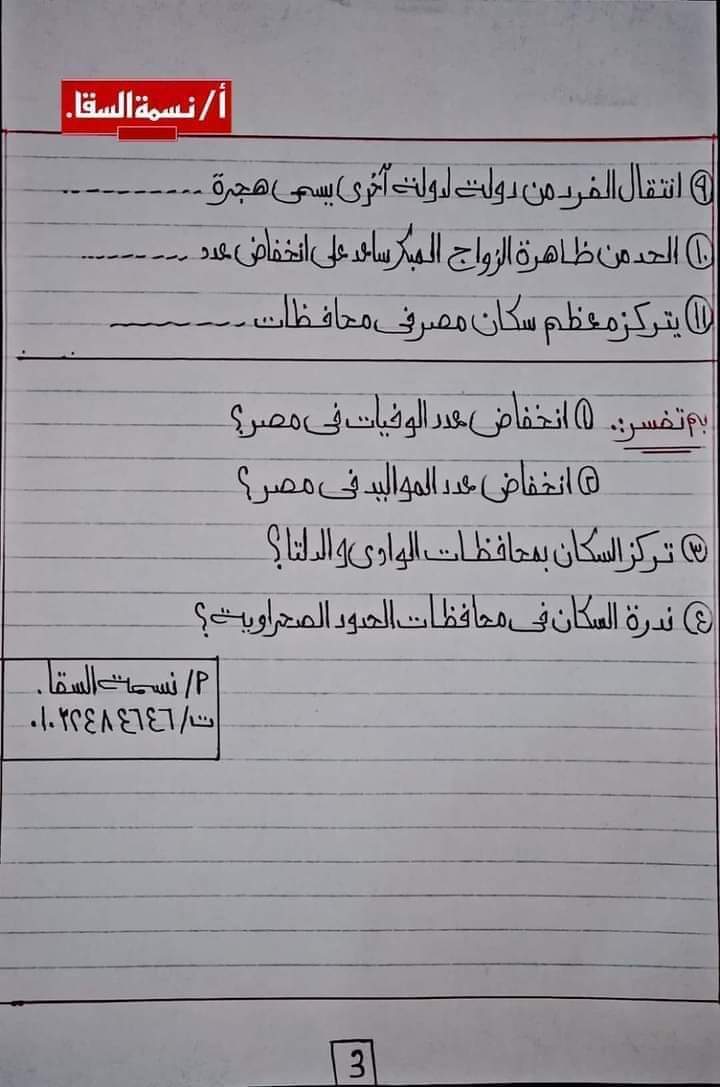 أ/ نسمة السقا.
٩ انتقال الفرد من دولة لدولة آخرى يسمى هجرة ..........
١٠ الحد من ظاهرة الزواج المبكر ساعد على انخفاض عدد ........
١١ يتركز معظم سكان مصر فى محافظات ........
بم تفسر:. ١ انخفاض عدد الوفيات فى مصر؟
٢ انخفاض عدد المواليد فى مصر؟
٣ تركز السكان بمحافظات الوادى والدلتا؟
٤ ندرة السكان فى محافظات الحدود الصحراوية؟
أ/ نسمة السقا.
ت/ ٠١٠٢٢٤٨٤٦٤٦
3